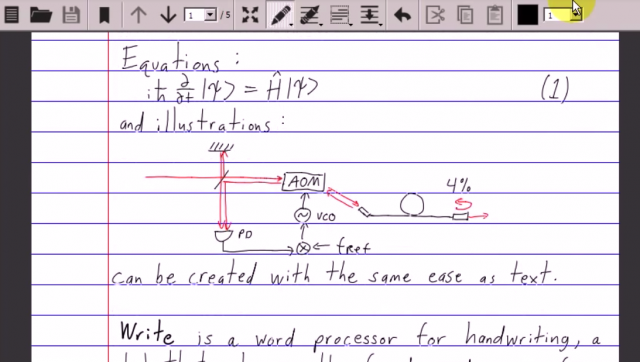 1 / 5
1
Equations:
iħ ∂/∂t |ψ⟩ = Ĥ|ψ⟩ (1)
and illustrations:
AOM
4%
VCO
PD
fRef
can be created with the same ease as text.
Write is a word processor for handwriting, a